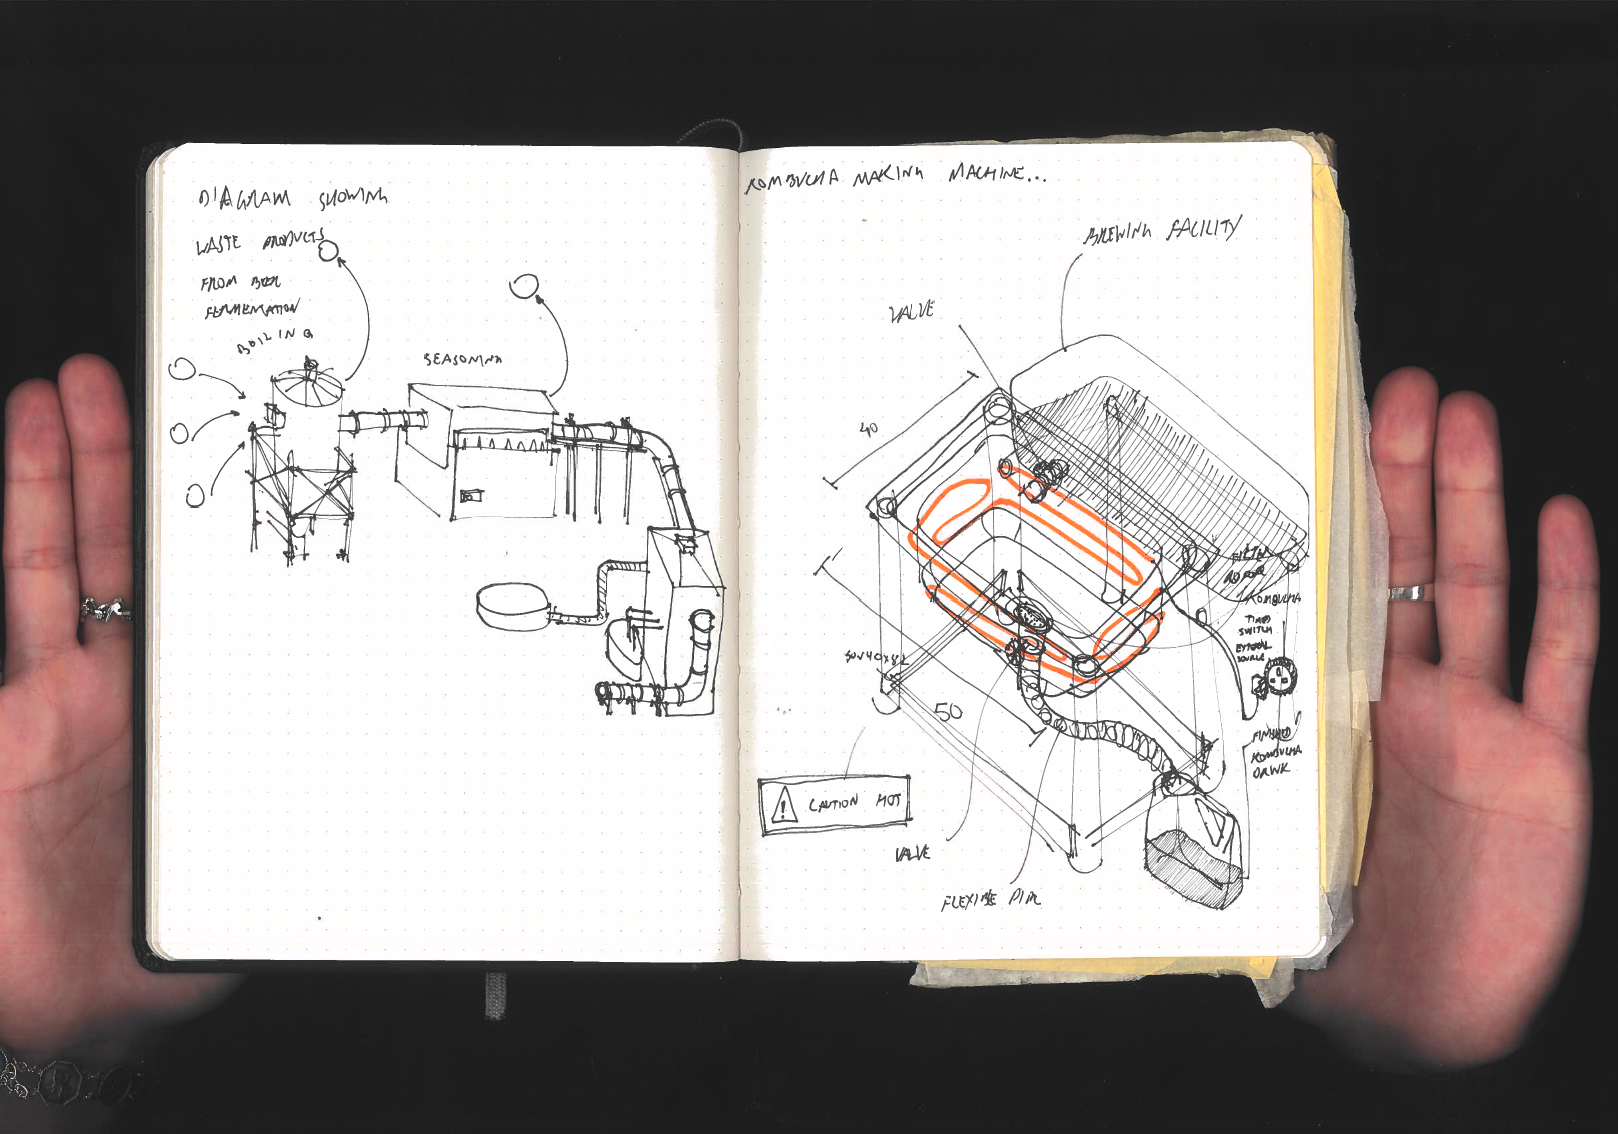 DIAGRAM SHOWING
WASTE PRODUCTS
FROM BEER
FERMENTATION
BOILING
SEASONING
KOMBUCHA MAKING MACHINE...
BREWING FACILITY
VALVE
40
KOMBUCHA
TIMED
SWITCH
EXTERNAL
SOURCE
50
FINISHED
KOMBUCHA
DRINK
! CAUTION HOT
VALVE
FLEXIBLE PIPE